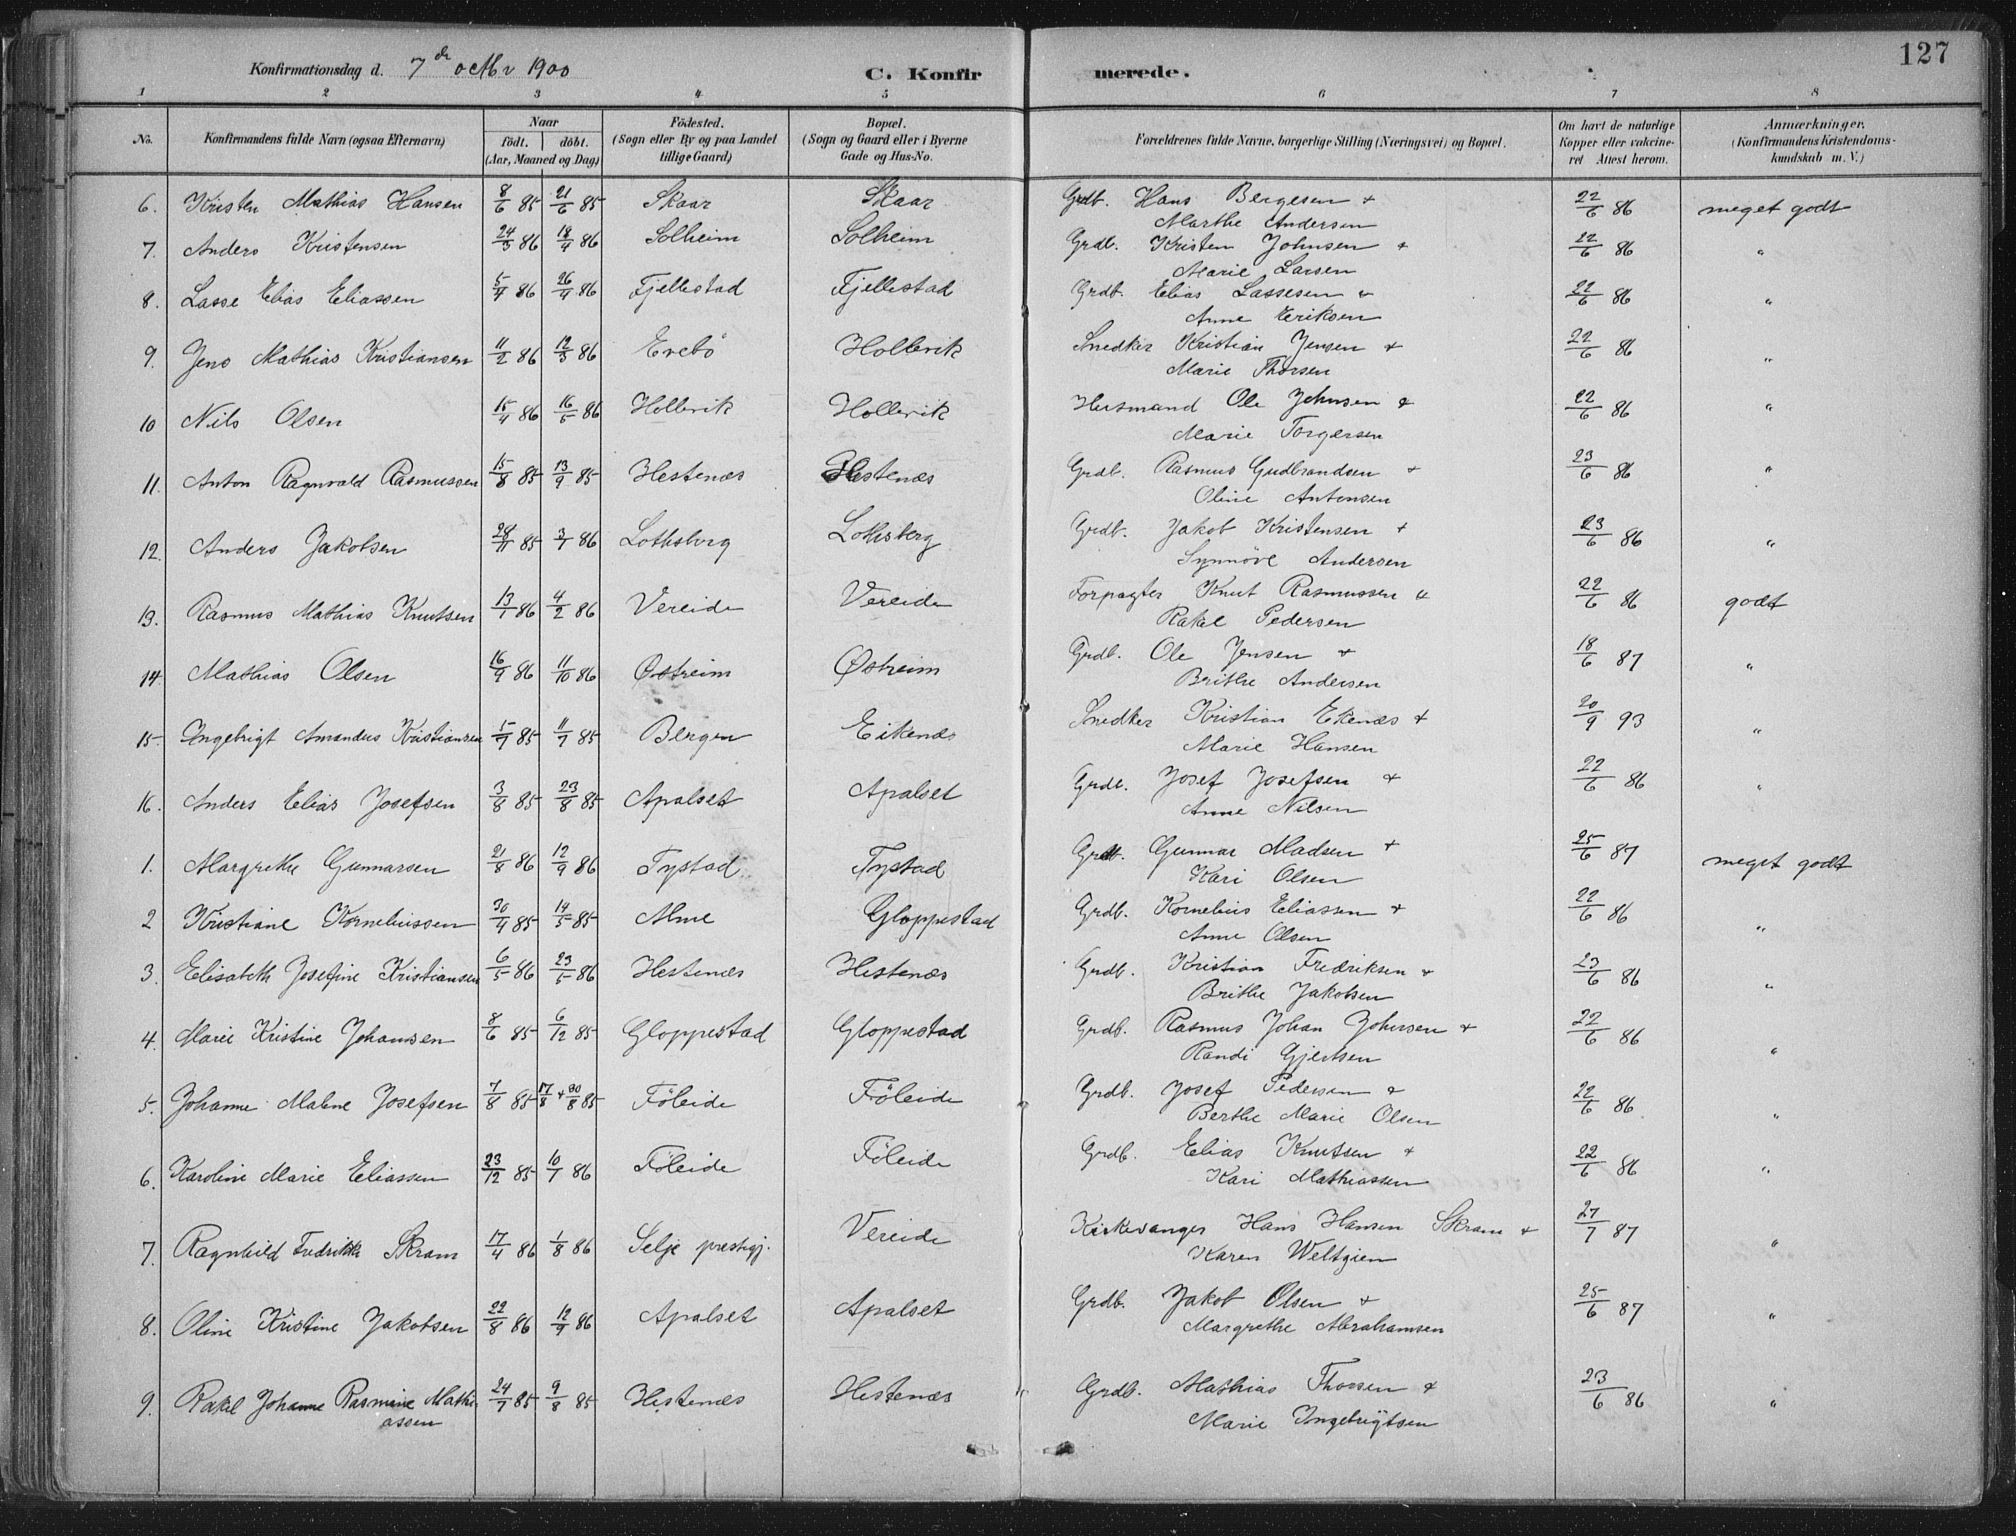 127
Konfirmationsdag d. 7de octbr 1900 C. Konfirmerede.
1 2 3 4 5 6 7 8
No. Konfirmandens fulde Navn (ogsaa Efternavn) Naar födt. döbt. (Aar, Maaned og Dag) Födested. (Sogn eller By og paa Landet tillige Gaard) Bopæl. (Sogn og Gaard eller i Byerne Gade og Hus-No. Forældrenes fulde Navne, borgerlige Stilling (Næringsvei) og Bopæl. Om havt de naturlige Kopper eller vaccineret Attest herom. Anmærkninger. (Konfirmandens Kristendomskundskab m. V.)
6. Kristen Mathias Hansen 8/6 85 21/6 85 Skaar Skaar Grdb. Hans Bergesen + 22/6 86 meget godt
Marthe Andersen
7. Anders Kristensen 24/3 86 18/4 86 Solheim Solheim Grdb. Kristen Johnsen + 22/6 86 "
Marie Larsen
8. Lasse Elias Eliassen 5/4 86 26/4 86 Fjellestad Fjellestad Grdb. Elias Lassesen + 22/6 86 "
Anne Eriksen
9. Jens Mathias Kristiansen 11/2 86 12/3 86 Evebö Hollevik Snedker Kristian Jensen + 22/6 86 "
Marie Thorsen
10 Nils Olsen 15/4 86 16/5 86 Hollevik Hollevik Husmand Ole Johnsen + 22/6 86 "
Marie Torgersen
11. Anton Ragnvald Rasmussen 15/8 85 13/9 85 Hestenæs Hestenæs Grdb. Rasmus Gudbrandsen + 23/6 86 "
Oline Antonsen
12. Anders Jakobsen 28/11 85 3/1 86 Lothsberg Lothsberg Grdb. Jakob Kristensen + 23/6 86 "
Synnöve Andersen
13. Rasmus Mathias Knutsen 13/1 86 4/2 86 Vereide Vereide Forpagter Knut Rasmussen + 22/6 86 godt
Rakel Pedersen
14. Mathias Olsen 16/9 86 11/10 86 Østreim Østreim Grdb. Ole Jensen + 18/6 87 "
Brithe Andersen
15. Ingebrigt Amandus Kristiansen 5/7 85 11/7 85 Bergen Eikenæs Snedker Kristian Ekenæs + 20/9 93 "
Marie Hansen
16. Anders Elias Josefsen 3/8 85 23/8 85 Apalset Apalset Grdb. Josef Josefsen + 22/6 86 "
Anne Nilsen
1. Margrethe Gunnarsen 21/8 86 12/9 86 Tystad Tystad Grdb. Gunnar Madsen + 25/6 87 meget godt
Kari Olsen
2 Kristiane Korneliussen 30/4 85 14/5 85 Alme Gloppestad Grdb. Kornelius Eliassen + 22/6 86 "
Anne Olsen
3. Elisabeth Josefine Kristiansen 6/5 86 23/5 86 Hestenæs Hestenæs Grdb. Kristian Fredriksen + 23/6 86 "
Brithe Jakobsen
4. Marie Kristine Johansen 8/6 85 6/12 85 Gloppestad Gloppestad Grdb. Rasmus Johan Johnsen + 22/6 86 "
Randi Gjertsen
5. Johanne Malene Josefsen 7/8 85 17/8 + 30/8 85 Föleide Föleide Grdb. Josef Pedersen + 22/6 86 "
Berthe Marie Olsen
6. Karoline Marie Eliassen 23/12 85 10/1 86 Föleide Föleide Grdb. Elias Knutsen + 22/6 86 "
Kari Mathiassen
7. Ragnhild Fredrikke Skram 17/4 86 1/8 86 Selje prestegj. Vereide Kirkesanger Hans Hansen Skram + 27/7 87 "
Karen Weltzien
8. Oline Kristine Jakobsen 22/8 86 12/9 86 Apalset Apalset Grdb. Jakob Olsen + 25/6 87 "
Margrethe Abrahamsen
9. Rakel Johanne Rasmine Mathi- 24/7 85 9/8 85 Hestenæs Hestenæs Grdb. Mathias Thorsen + 23/6 86 "
assen Marie Ingebrigtsen